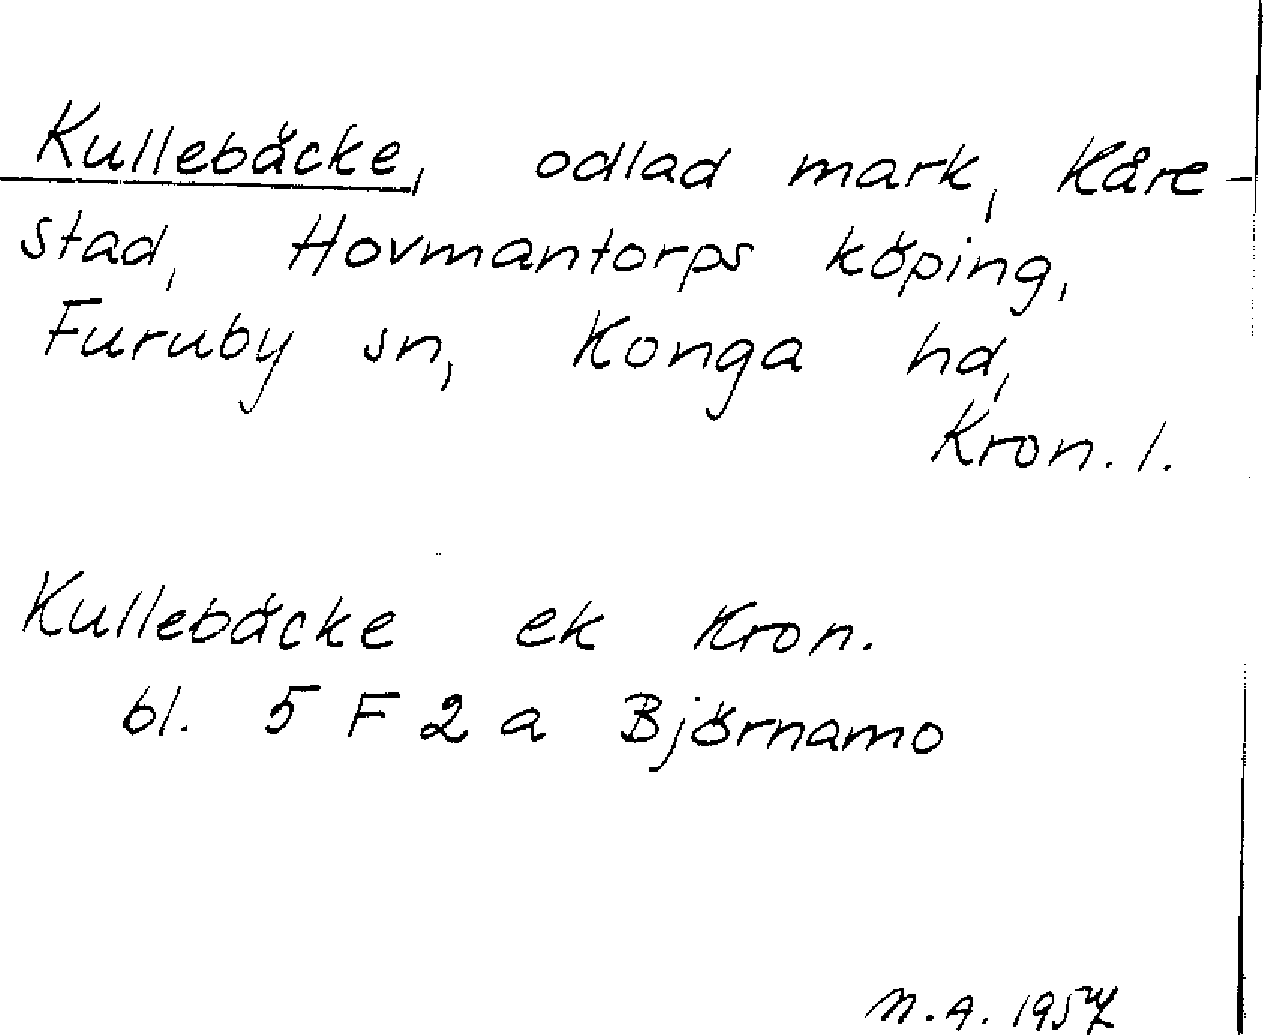 Kullebäcke, odlad mark, Kåre-
stad, Hovmantorps köping,
Furuby sn, Konga hd,
Kron. l.
Kullebäcke ek Kron.
bl. 5 F 2 a Björnamo
N.A. 1957